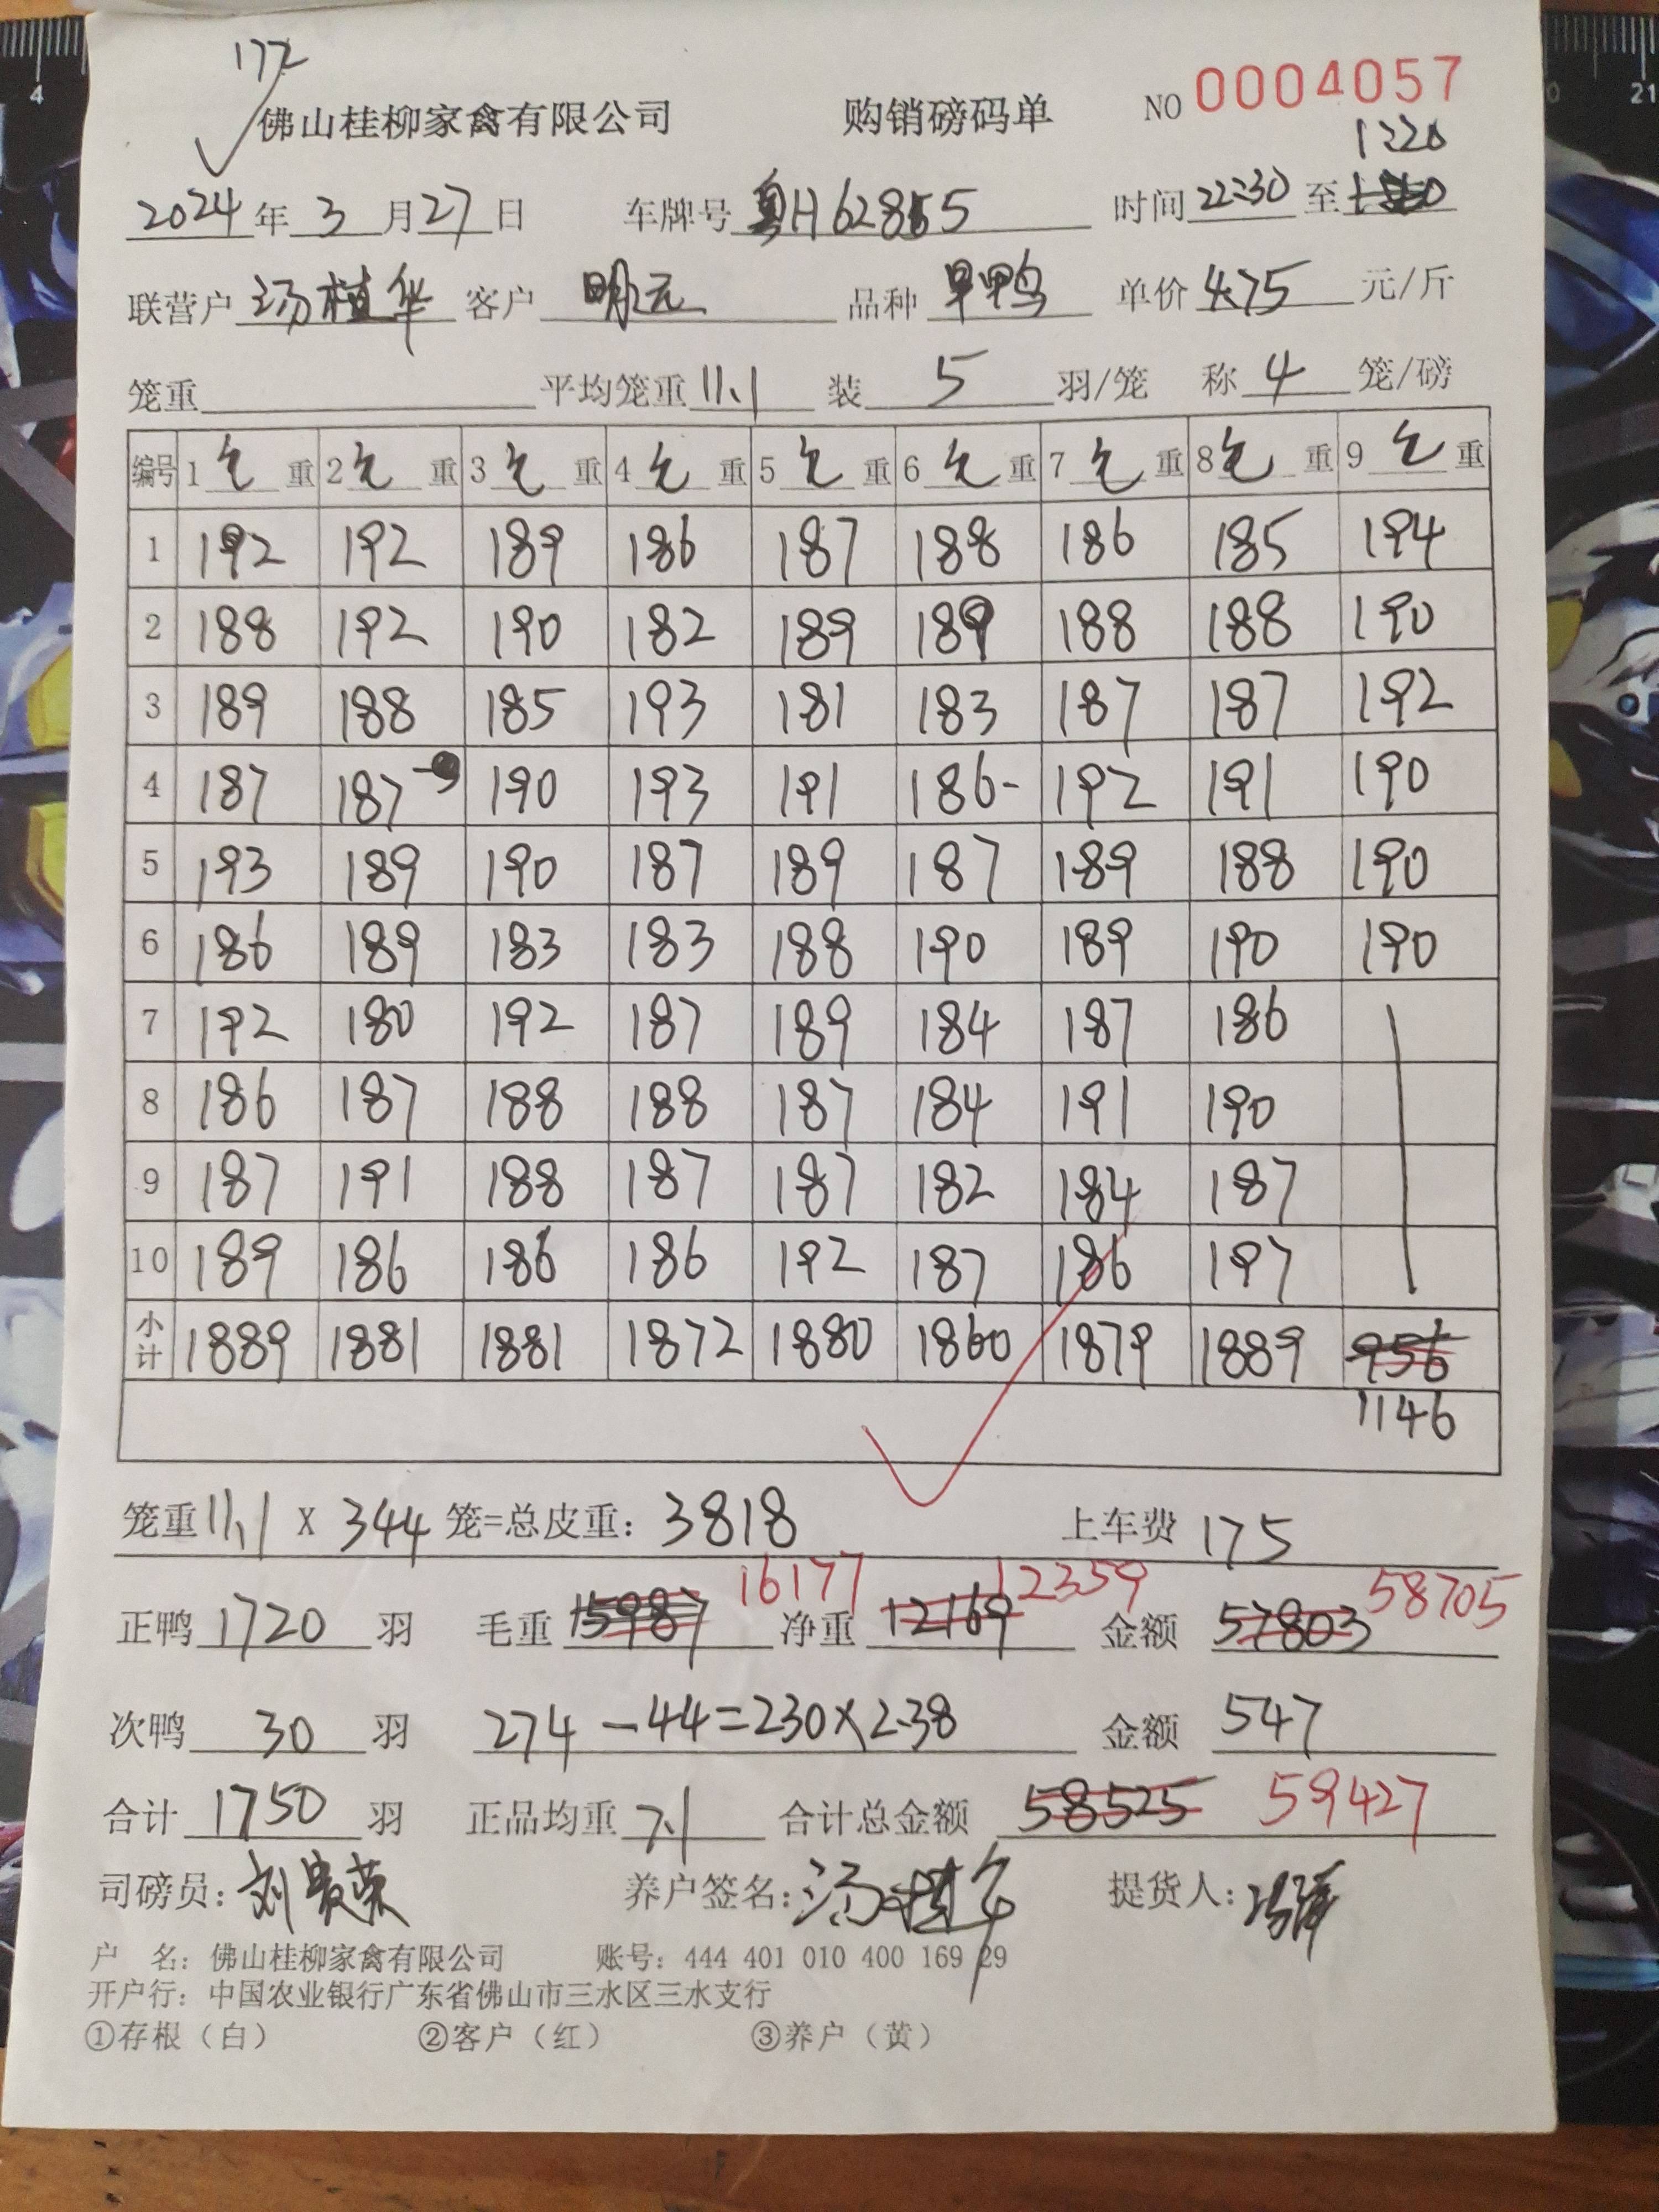 172
佛山桂柳家禽有限公司 购销磅码单 NO 0004057
1:20
2024年3月27日 车牌号 粤H62865 时间 22:30 至
联营户 汤植华 客户 明元 品种 旱鸭 单价 4.75 元/斤
笼重 平均笼重 11.1 装 5 羽/笼 称 4 笼/磅
编号 1 毛 重 2 毛 重 3 毛 重 4 毛 重 5 毛 重 6 毛 重 7 毛 重 8 毛 重 9 毛 重
1 192 192 189 186 187 188 186 185 194
2 188 192 190 182 189 189 188 188 190
3 189 188 185 193 181 183 187 187 192
4 187 187 190 193 191 186- 192 191 190
5 193 189 190 187 189 187 189 188 190
6 186 189 183 183 188 190 189 190 190
7 192 180 192 187 189 184 187 186
8 186 187 188 188 187 184 191 190
9 187 191 188 187 187 182 184 187
10 189 186 186 186 192 187 186 197
小计 1889 1881 1881 1872 1880 1860 1879 1889 956
1146
笼重 11.1 X 344 笼=总皮重: 3818 上车费 175
正鸭 1720 羽 毛重 15987 16177 净重 12169 12359 金额 57803 58705
次鸭 30 羽 274-44=230×2.38 金额 547
合计 1750 羽 正品均重 7.1 合计总金额 58525 59427
司磅员: 刘贵荣 养户签名: 汤植华 提货人:
户 名: 佛山桂柳家禽有限公司 账号: 444 401 010 400 169 29
开户行: 中国农业银行广东省佛山市三水区三水支行
①存根（白） ②客户（红） ③养户（黄）
4
0 21